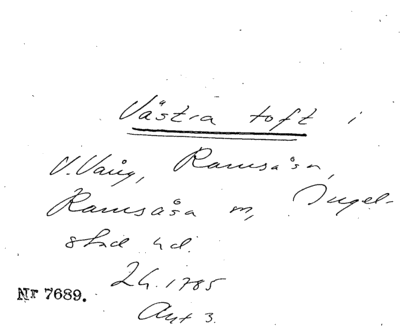 Västra toft i
V. Vång, Ramsåsa,
Ramsåsa m, Ingel-
stad hd.
Lh. 1785
Akt 3.
Nr 7689.